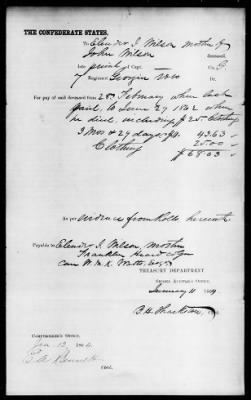 THE CONFEDERATE STATES,
To Elender J. Wilson mother of
John Wilson deceased
late private Capt. Co. G.
7 Regiment Georgia
For pay of said deceased from 28 February when last
paid, to June 27 1862 when
he died, including $25 Clothing
3 Mos & 29 days pay. 43.63
Clothing 25.00
$68.63
As per evidence from Rolls herewith
Payable to Elender J. Wilson, Mother
Franklin, Heard co Ga
care W.
TREASURY DEPARTMENT
SECOND AUDITOR'S OFFICE,
January 11 1864
COMPTROLLER'S OFFICE,
Jan 12, 1864
Clerk.